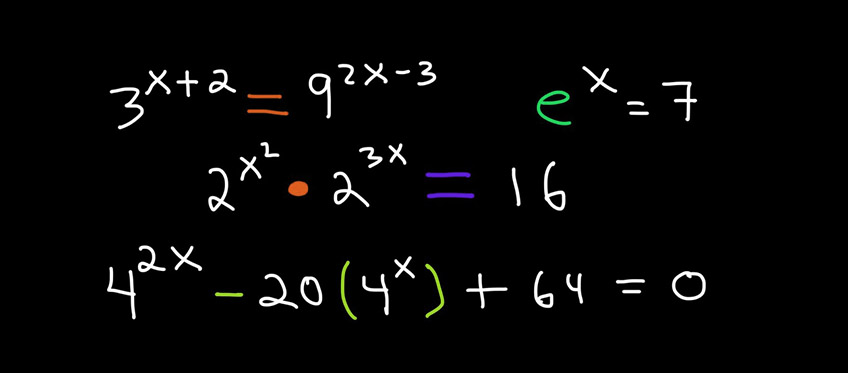 3^{x+2} = 9^{2x-3} e^x = 7
2^{x^2} • 2^{3x} = 16
4^{2x} - 20(4^x) + 64 = 0